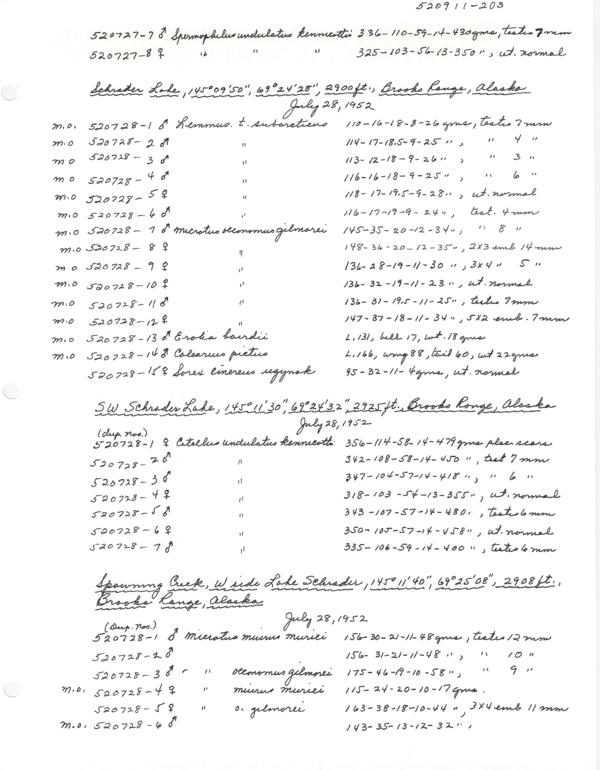 520911-203
520727-7 ♂ Spermophilus undulatus kennicottii 336-110-59-14-430gms, testes 7mm
520727-8 ♀ " " " 325-103-56-13-350 ", ut. normal
Schrader Lake, 145°09'50", 69°24'28", 2900 ft., Brooks Range, Alaska
July 28, 1952
m.o. 520728-1 ♂ Lemmus. t. subarcticus 110-16-18-8-26 gms, testes 7mm
m.o 520728-2 ♂ " 114-17-18.5-9-25 ", " 4 "
m.o 520728-3 ♂ " 113-12-18-9-26 ", " 3 "
m.o 520728-4 ♂ " 116-16-18-9-25 ", " 6 "
m.o 520728-5 ♀ " 118-17-19.5-9-28 ", ut. normal
m.o 520728-6 ♂ " 116-17-19-9-24 ", test. 4mm
m.o 520728-7 ♂ Microtus oeconomus gilmorei 145-35-20-12-34 ", " 8 "
m.o 520728-8 ♀ " 148-36-20-12-35 ", 2X3 emb 14mm
m.o 520728-9 ♀ " 136-28-19-11-30 ", 3x4 " 5 "
m.o 520728-10 ♀ " 136-32-19-11-23 ", ut. normal
m.o 520728-11 ♂ " 136-31-19.5-11-25 ", testes 7mm
m.o 520728-12 ♀ " 147-37-18-11-34 ", 5x2 emb. 7mm
m.o 520728-13 ♂ Erolia bairdii L, 131, bill 17, wt. 18gms
m.o 520728-14 ♂ Calcarius pictus L. 166, wng 88, tail 60, wt 22gms
520728-15 ♀ Sorex cinereus ugyunak 95-32-11-4gms, ut. normal
SW Schrader Lake, 145°11'30", 69°24'32", 2925 ft., Brooks Range, Alaska
July 28, 1952
(dup. nos.)
520728-1 ♀ Citellus undulatus kennicotti 356-114-58-14-479gms plac. scars
520728-2 ♂ " 342-108-58-14-450 ", test 7mm
520728-3 ♂ " 347-104-57-14-418 ", " 6 "
520728-4 ♀ " 318-103-54-13-355 ", ut. normal
520728-5 ♂ " 343-107-57-14-480 ", testes 6mm
520728-6 ♀ " 350-105-57-14-458 ", ut. normal
520728-7 ♂ " 335-106-59-14-400 ", testes 6mm
Spawning Creek, W side Lake Schrader, 145°11'40", 69°25'08", 2908 ft.,
Brooks Range, Alaska
July 28, 1952
(Dup. nos.)
520728-1 ♂ Microtus miurus muriei 156-30-21-11-48gms, testes 12mm
520728-2 ♂ 156-31-21-11-48 ", " 10 "
520728-3 ♂ " oeconomus gilmorei 175-46-19-10-58 ", " 9 "
m.o. 520728-4 ♀ " miurus muriei 115-24-20-10-17gms.
520728-5 ♀ " o. gilmorei 163-38-18-10-44 ", 3X4 emb 11mm
m.o. 520728-6 ♂ 143-35-13-12-32 ",